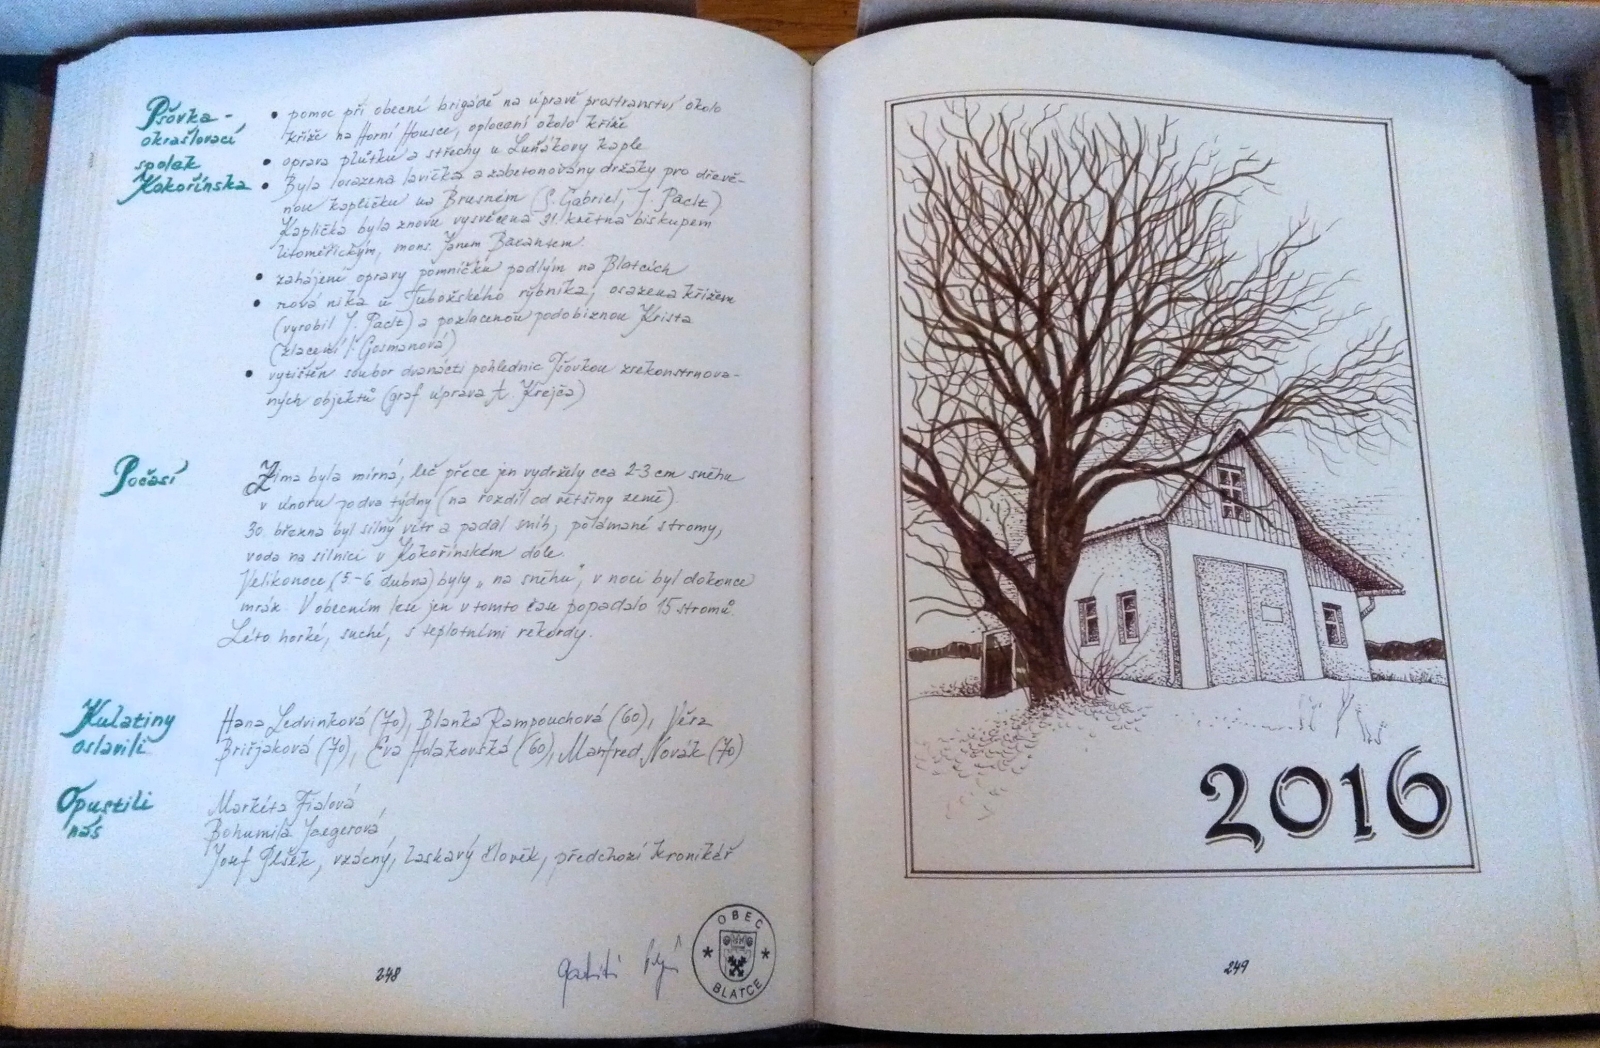 Pšovka -
okrašlovací
spolek
Kokořínska
• pomoc při obecní brigádě na úpravě prostranství okolo
kříže na Horní Housce, oplocení okolo kříže
• oprava plůtku a střechy u Luňákovy kaple
• Byla osazena lavička a zabetonovány držáky pro dřevě-
nou kapličku na Brusném (S. Gabriel, J. Paclt)
Kaplička byla znovu vysvěcena 31. května biskupem
litoměřickým, mons. Janem Baxantem.
• zahájení opravy pomníčku padlým na Blatcích
• nová nika u Tubožského rybníka, osazena křížem
(vyrobil J. Paclt) a pozlacenou podobiznou Krista
(zlacení J. Gosmanová)
• vytištěn soubor dvanácti pohlednic Pšovkou zrekonstruova-
ných objektů (graf úprava A. Krejča)
Počasí
Zima byla mírná, leč přece jen vydržely cca 2-3 cm sněhu
v únoru po dva týdny (na rozdíl od většiny země).
30. března byl silný vítr a padal sníh, polámané stromy,
voda na silnici v Kokořínském dole.
Velikonoce (5-6. dubna) byly „na sněhu", v noci byl dokonce
mráz. V obecním lese jen v tomto čase popadalo 15 stromů.
Léto horké, suché, s teplotními rekordy.
Kulatiny
oslavili
Hana Ledvinková (70), Blanka Rampouchová (60), Věra
Brišjaková (70), Eva Holakovská (60), Manfred Novák (70)
Opustili
nás
Markéta Fialová
Bohumila Jaegerová
Josef Plšek, vzácný, laskavý člověk, předchozí kronikář
OBEC
BLATCE
248
2016
249